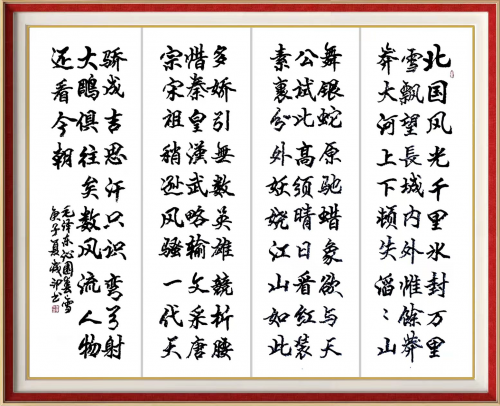 北国风光千里氷封万里
雪飘望長城内外惟餘莽
莽大河上下頓失滔〻山
舞银蛇原驰蜡象欲与天
公试比高须晴日看红装
素裹分外妖娆江山如此
多娇引無數英雄競折腰
惜秦皇漢武略输文采唐
宗宋祖稍逊风骚一代天
骄成吉思汗只识弯弓射
大鵰俱往矣数风流人物
还看今朝
毛泽东沁园春雪
庚子夏 书